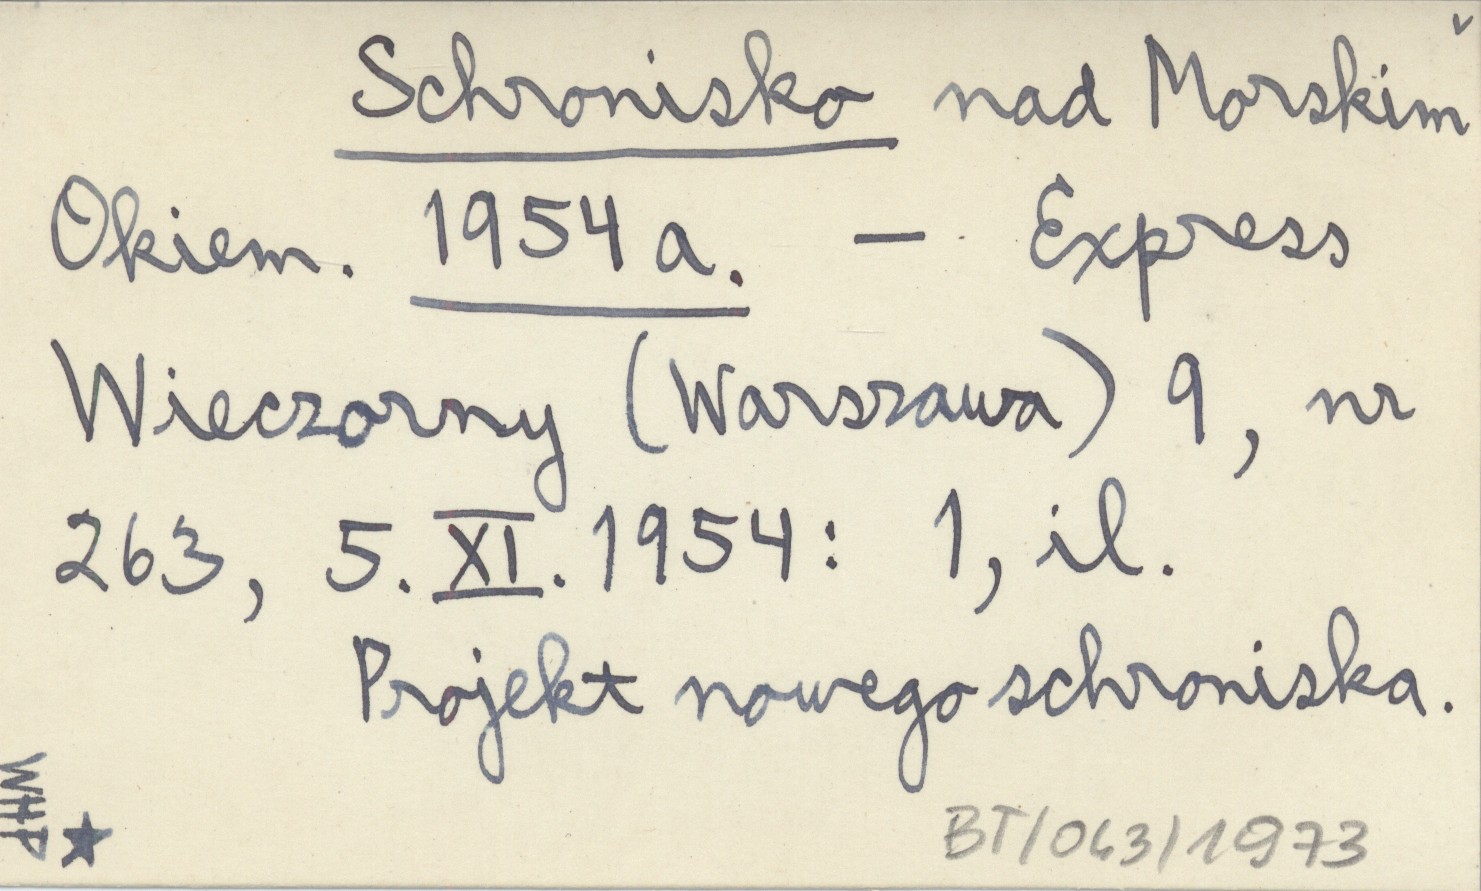 Schronisko nad Morskim
Okiem. 1954a. — Express
Wieczorny (Warszawa) 9, nr
263, 5.XI.1954: 1, il.
Projekt nowego schroniska.
WHP ★
BT/063/1973